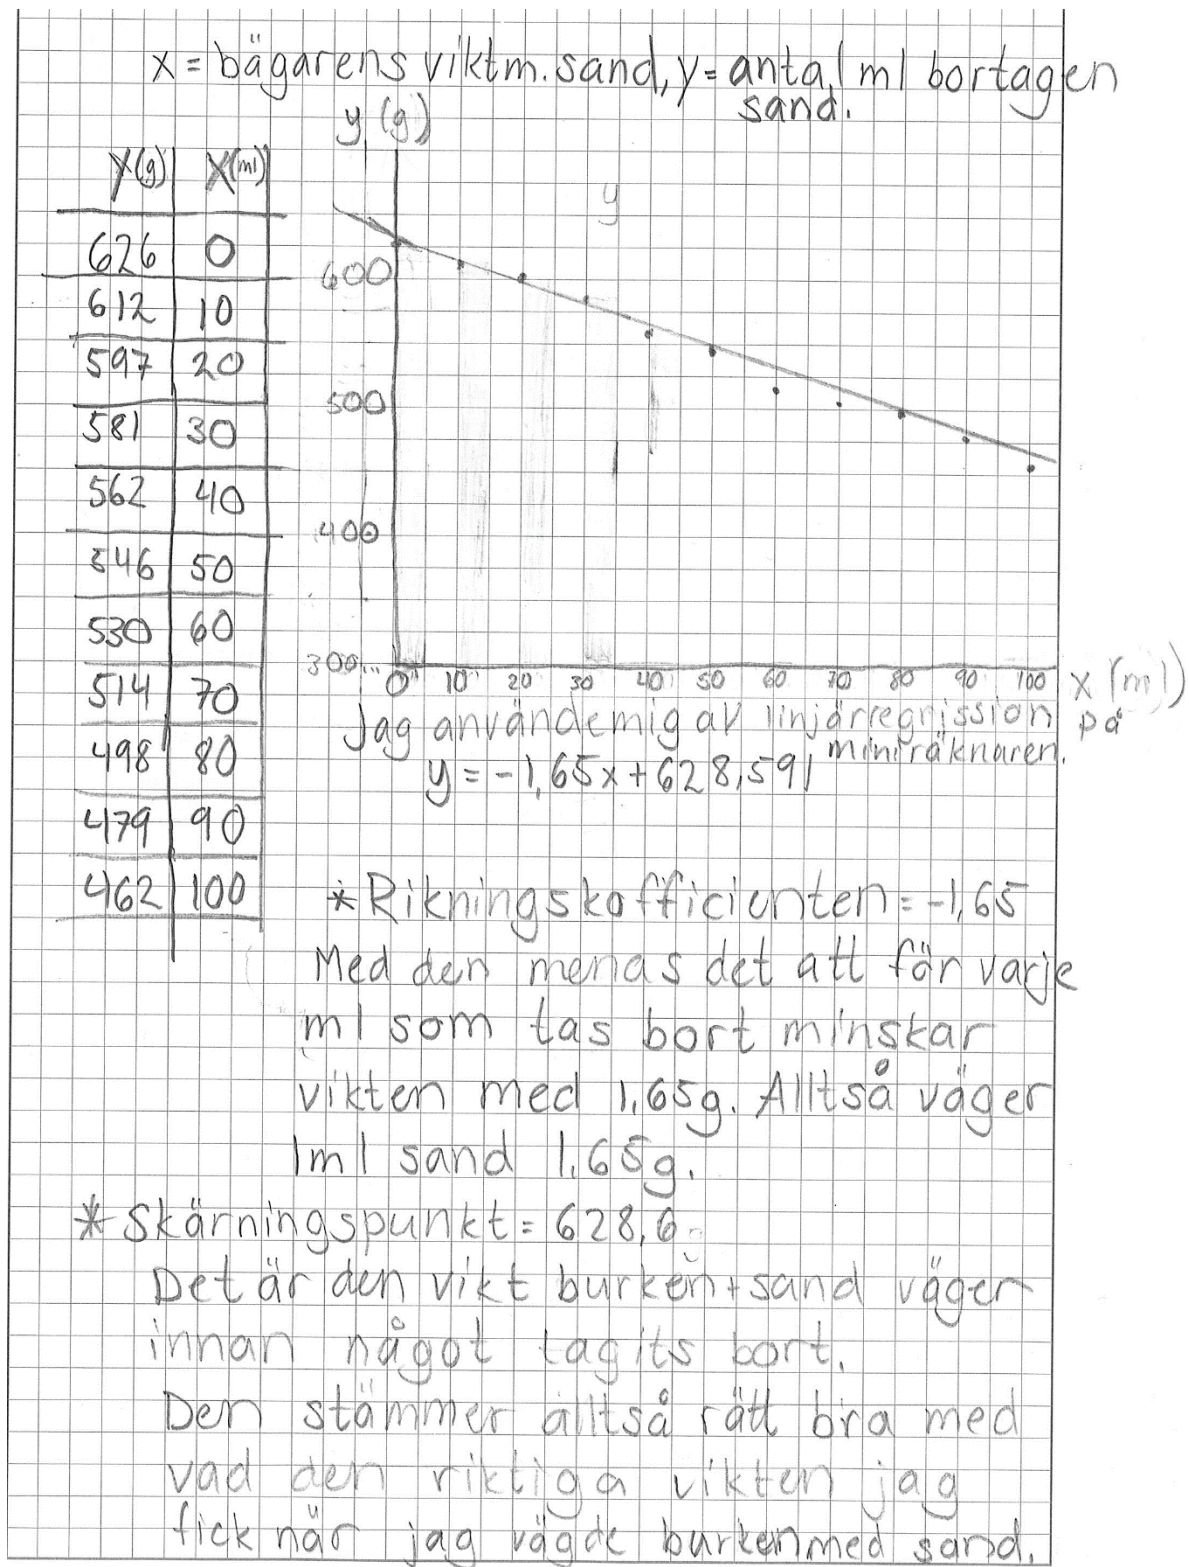 x = bägarens vikt m. sand, y = antal ml bortagen
sand.
y (g)
y(g) x(ml)
y
626 0
612 10
597 20
581 30
562 40
546 50
530 60
514 70
498 80
479 90
462 100
600
500
400
300
0 10 20 30 40 50 60 70 80 90 100 x (ml)
Jag använde mig av linjärregrission på
miniräknaren.
y = -1,65x + 628,591
* Rikningskofficienten = -1,65
Med den menas det att för varje
ml som tas bort minskar
vikten med 1,65g. Alltså väger
1ml sand 1,65g.
* Skärningspunkt = 628,6
Det är den vikt burken + sand väger
innan något tagits bort.
Den stämmer alltså rätt bra med
vad den riktiga vikten jag
fick när jag vägde burken med sand.